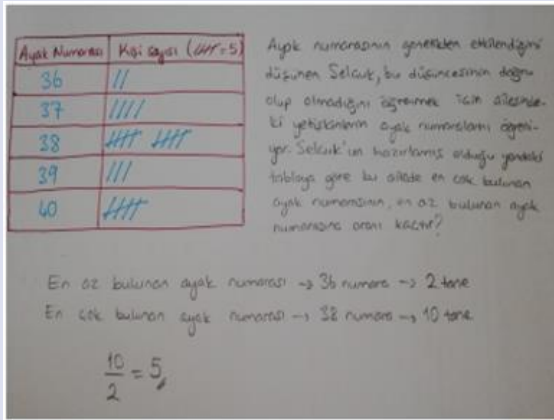 Ayak Numarası | Kişi sayısı (卌=5)
36 | //
37 | ////
38 | 卌 卌
39 | ///
40 | 卌
Ayak numarasının genetikten etkilendiğini
düşünen Selçuk, bu düşüncesinin doğru
olup olmadığını öğrenmek için ailesinde-
ki yetişkinlerin ayak numaralarını öğreni-
yor. Selçuk'un hazırlamış olduğu yandaki
tabloya göre bu ailede en çok bulunan
ayak numarasının, en az bulunan ayak
numarasına oranı kaçtır?
En az bulunan ayak numarası → 36 numara → 2 tane
En çok bulunan ayak numarası → 38 numara → 10 tane
10/2 = 5